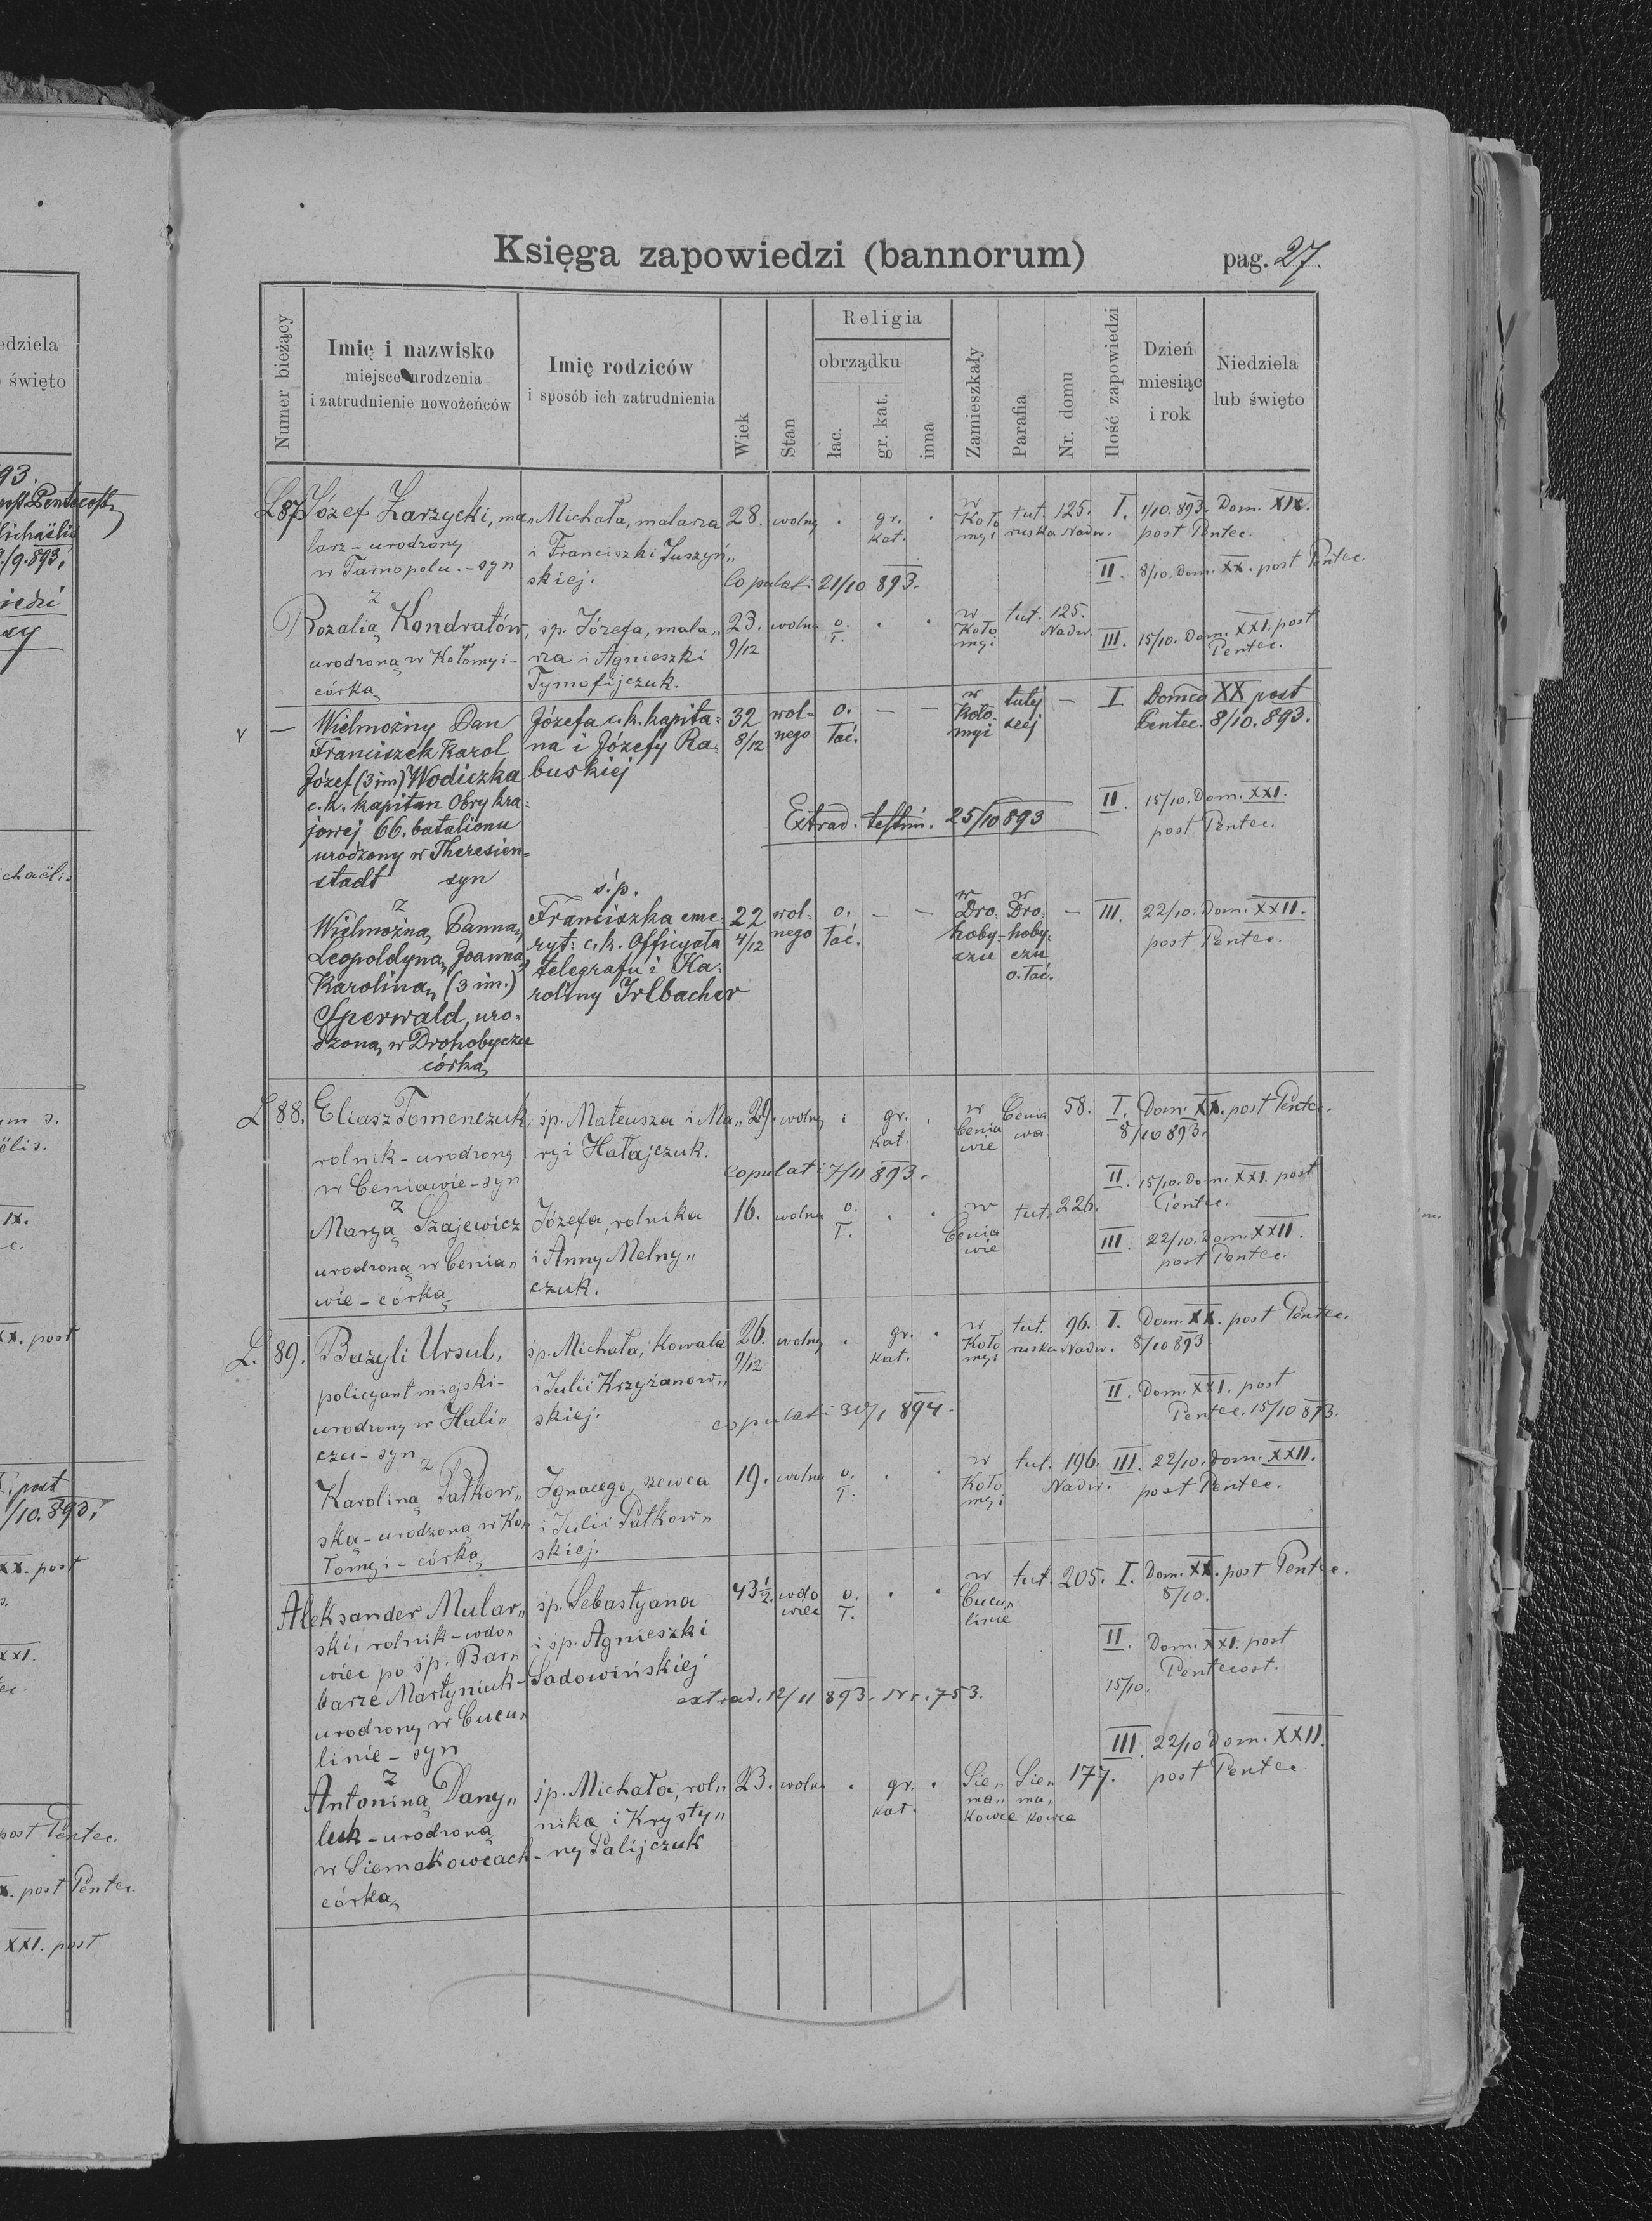 Księga zapowiedzi (bannorum)
pag. 27.
Numer bieżący
Imię i nazwisko
miejsce urodzenia
i zatrudnienie nowożeńców
Imię rodziców
i sposób ich zatrudnienia
Wiek
Stan
Religia
obrządku
łac.
gr. kat.
inna
Zamieszkały
Parafia
Nr. domu
Ilość zapowiedzi
Dzień
miesiąc
i rok
Niedziela
lub święto
L 87. Józef Zarzycki, ma„
larz - urodzony
w Tarnopolu. - syn
Michała, malarza
i Franciszki Juszyń„
skiej.
28. wolny . gr. kat. .
w Koło myi
tut. ruska
125. Nadw.
I. 1/10. 893. Dom. XIX.
post Pentec.
Copulati 21/10 893.
II. 8/10. Dom. XX. post Pentec.
z
Rozalią Kondratów,
urodzoną w Kołomyi -
córką
śp. Józefa, mala„
rza i Agnieszki
Tymofijczuk.
23. 9/12 wolna o. ł. . .
w Koło myi
tut. 125. Nadw.
III. 15/10. Dom. XXI. post
Pentec.
v — Wielmożny Pan
Franciszek Karol
Józef (3 im) Wodiczka
c. k. kapitan Obry kra=
jowej 66. batalionu
urodzony w Theresien=
stadt syn
Józefa c. k. kapita=
na i Józefy Ra=
buskiej
32 8/12 wol= nego o. łać. — —
w Koło= myi
tutej szej —
I Domca XX post
Pentec. 8/10. 893.
Extrad. testim. 25/10 893
II. 15/10. Dom. XXI.
post Pentec.
z
Wielmożną Panną
Leopoldyną Joanną
Karoliną (3 im.)
Sperwald, uro=
dzoną w Drohobyczu
córką
ś. p.
Franciszka eme=
ryt: c. k. Officyała
telegrafu i Ka=
roliny Irlbacher
22 4/12 wol= nego o. łać. — —
w Dro= hoby= czu
w Dro= hoby= czu o. łać. —
III. 22/10. Dom. XXII.
post Pentec.
L 88. Eliasz Tomenczuk,
rolnik - urodzony
w Ceniawie - syn
śp. Mateusza i Ma„
ryi Hałajczuk.
29. wolny . gr. kat. .
w Cenia wie
Cenia wa
58.
I. Dom. XX. post Pentec.
8/10 893.
copulati 7/11 893.
II. 15/10. Dom. XXI. post
Pentec.
z
Maryą Szajewicz
urodzoną w Cenia„
wie - córką
Józefa, rolnika
i Anny Melny„
czuk.
16. wolna o. ł. . .
w Cenia wie
tut. 226.
III. 22/10. Dom. XXII.
post Pentec.
L. 89. Bazyli Ursul,
policyant miejski -
urodzony w Hali„
czu - syn
śp. Michała, kowala
i Julii Krzyżanow„
skiej.
26. 9/12 wolny . gr. kat. .
w Koło myi
tut. ruska
96. Nadw.
I. Dom. XX. post Pentec.
8/10 893
II. Dom. XXI. post
Pentec. 15/10 893.
copulati 30/1 894.
z
Karoliną Patkow„
ską - urodzoną w Ko„
łomyi - córką
Ignacego, szewca
i Julii Patkow„
skiej.
19. wolna o. ł. . .
w Koło myi
tut. 196. Nadw.
III. 22/10. Dom. XXII.
post Pentec.
Aleksander Mular„
ski, rolnik - wdo„
wiec po śp. Bar„
barze Martyniuk -
urodzony w Cucu„
linie - syn
śp. Sebastyana
i śp. Agnieszki
Sadowińskiej
43½. wdo wiec o. ł. . .
w Cucu„ linie
tut. 205.
I. Dom. XX. post Pentec.
8/10.
II. Dom. XXI. post
Pentecost.
15/10.
extrad. 12/11 893. Nr. 753.
III. 22/10 Dom. XXII.
post Pentec.
z
Antoniną Dany„
luk - urodzoną
w Siemakowcach -
córką
śp. Michała, rol„
nika i Krysty„
ny Palijczuk
23. wolna . gr. kat. .
Sie„ ma„ kowce
Sie„ ma„ kowce
177.